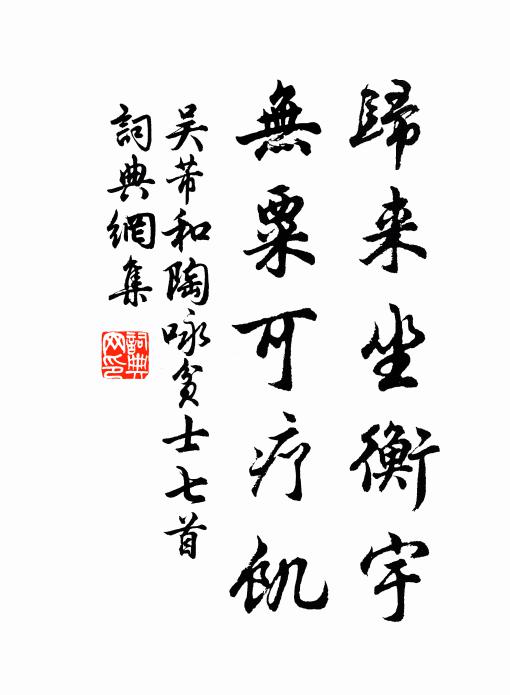 歸来坐衡宇
無粟可疗飢
吴芾和陶咏貧士七首
詞典網集
詞典网印